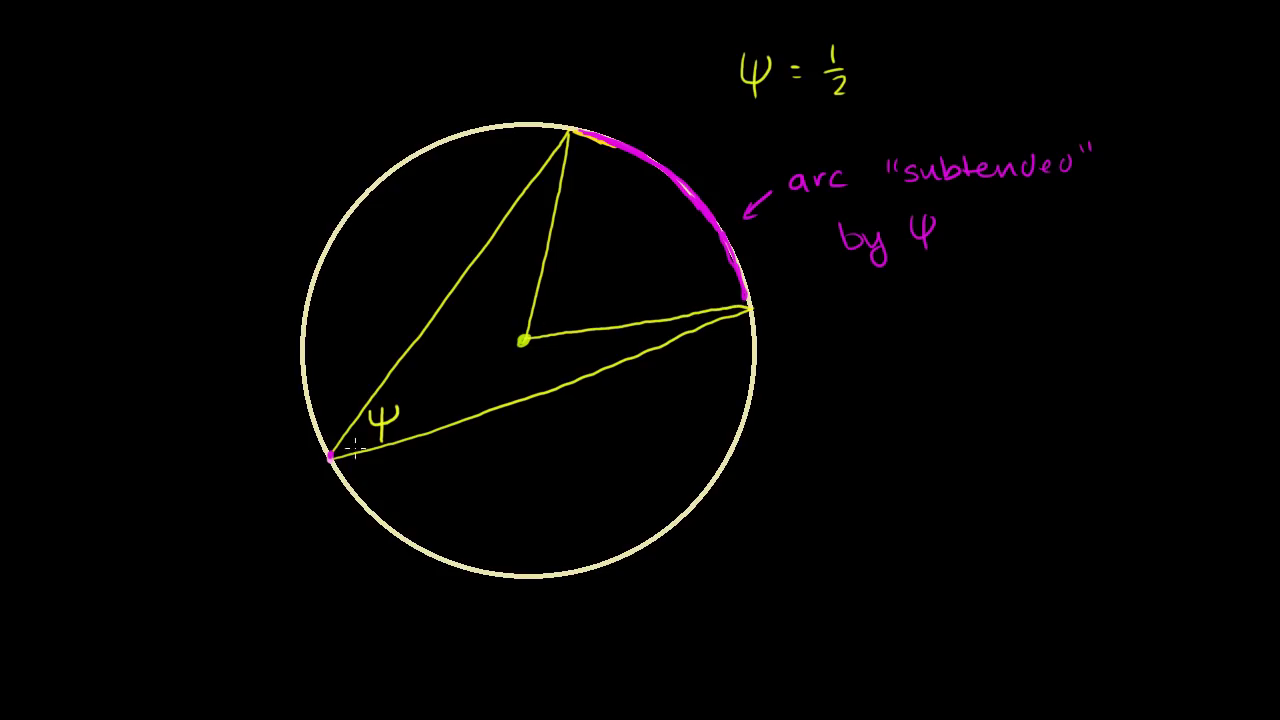 ψ = 1/2
arc "subtended"
by ψ
ψ